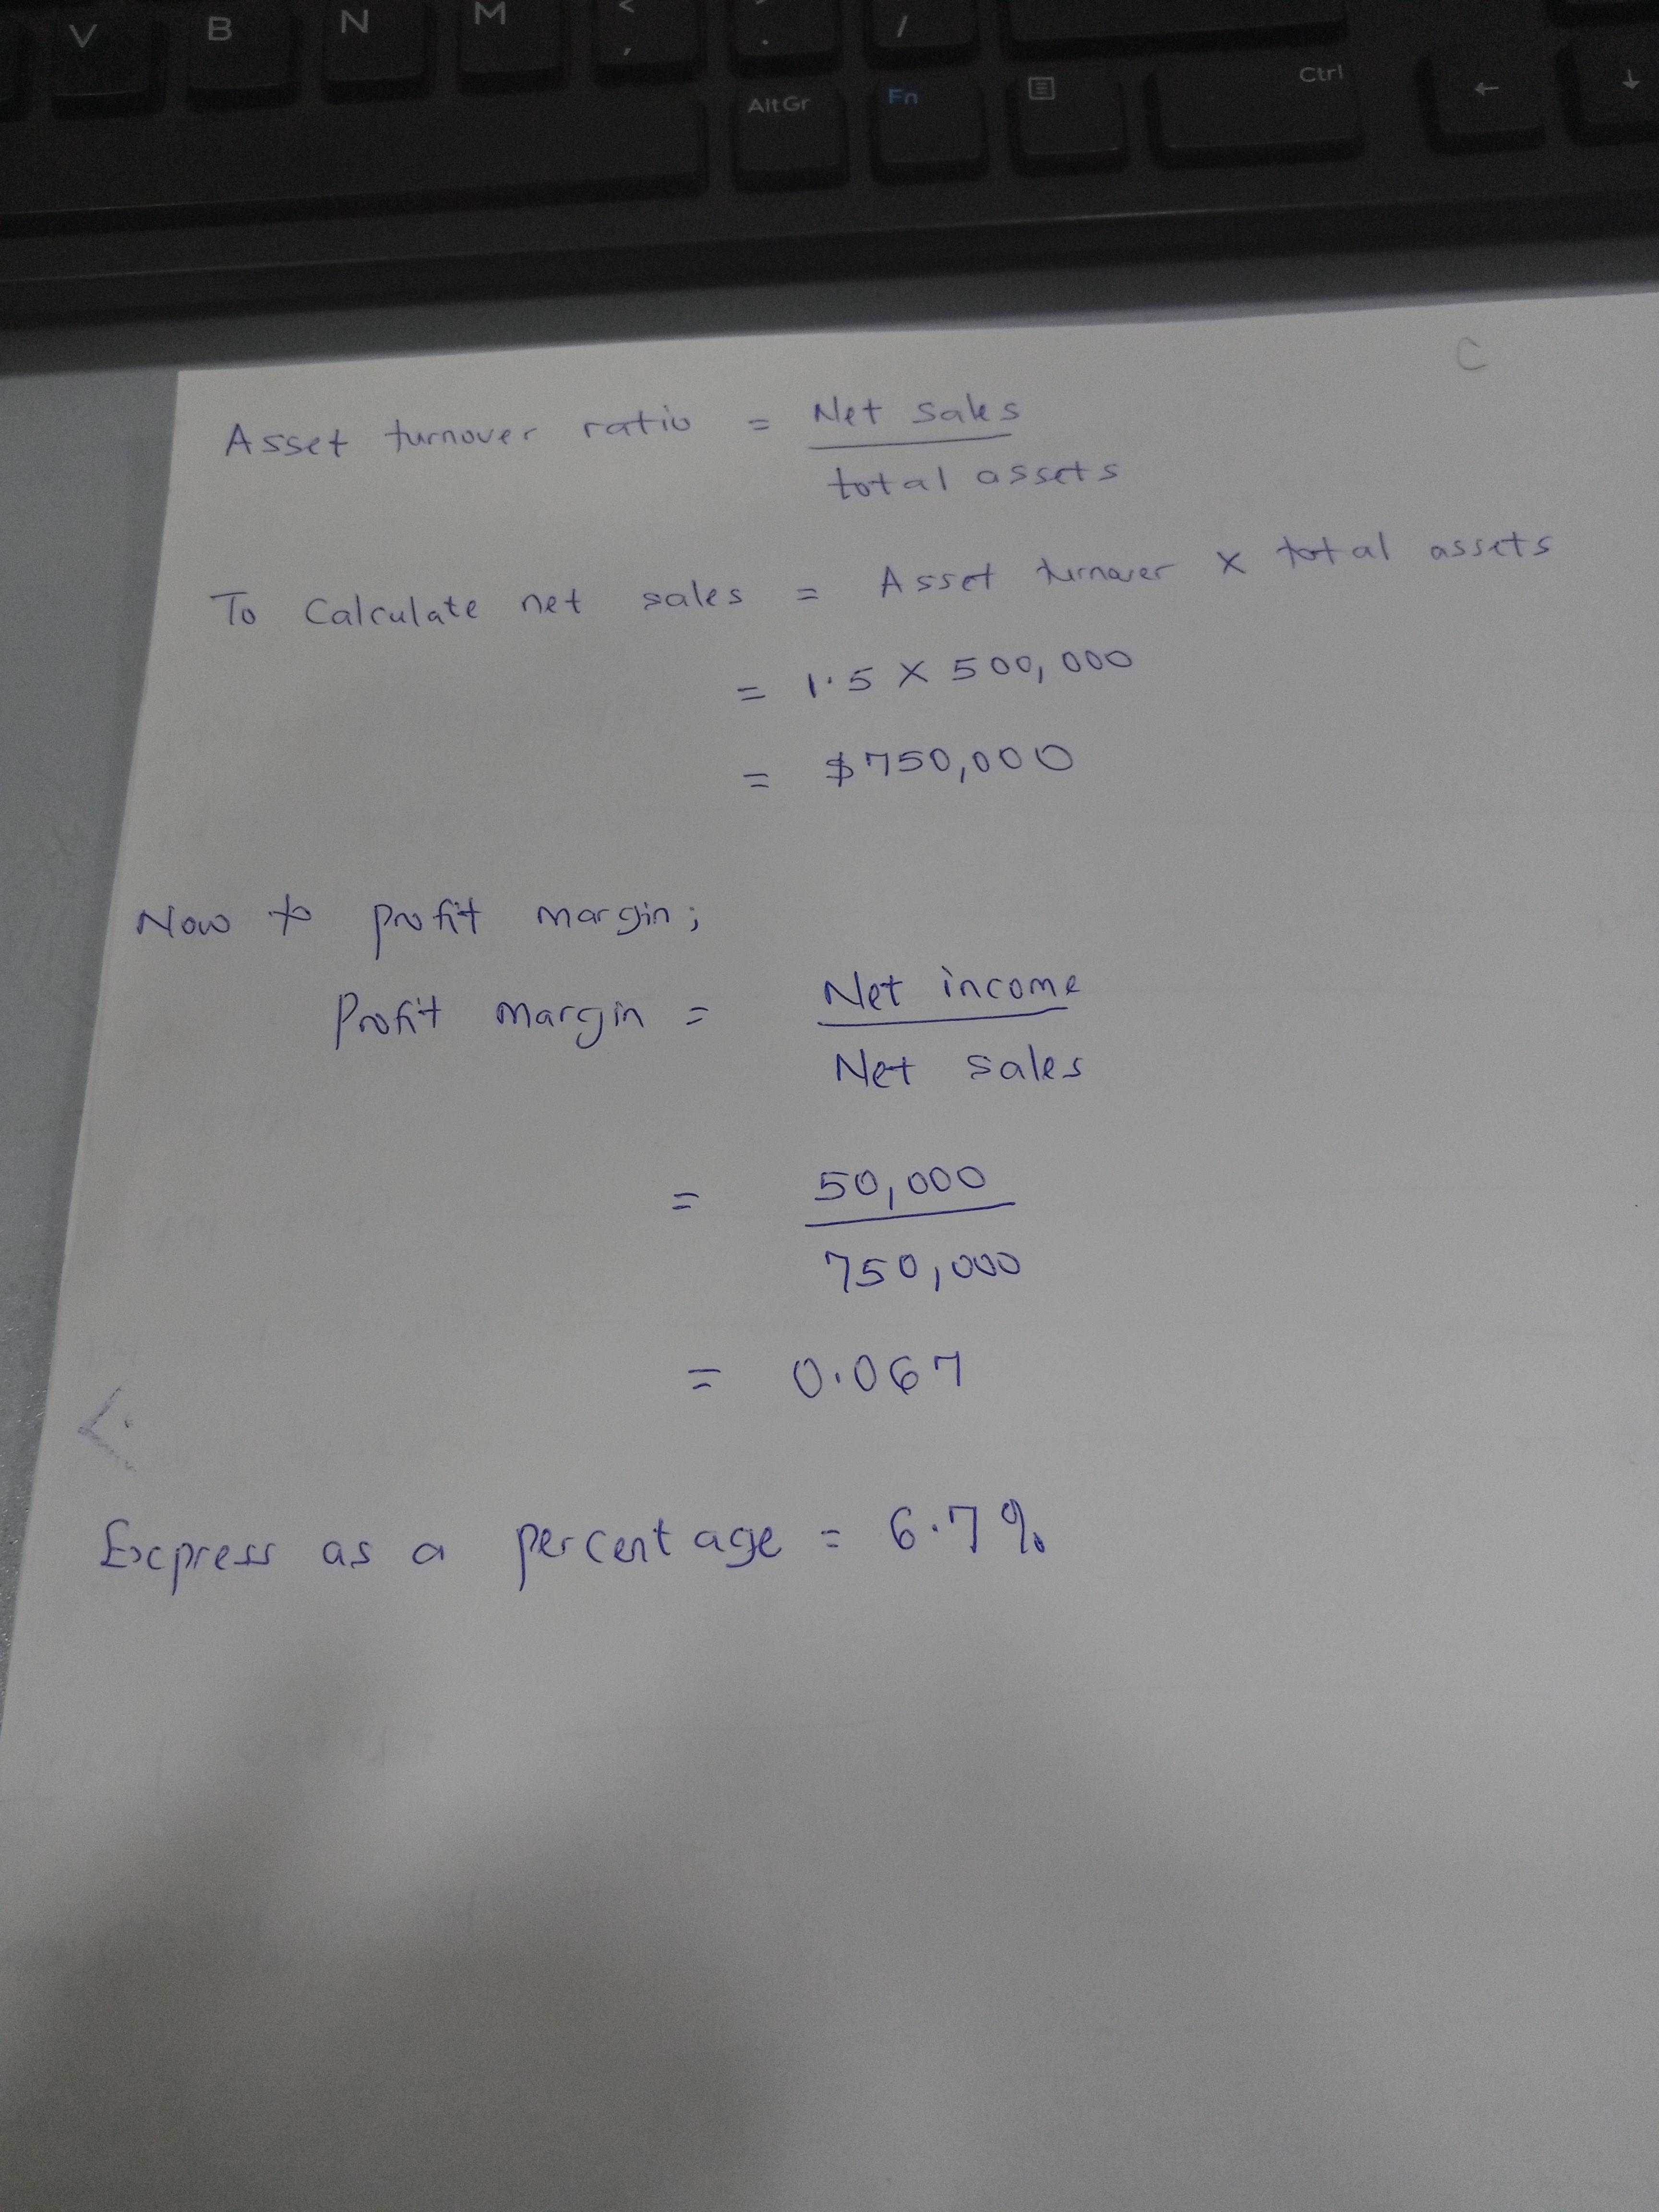 V B N M < , > . / 
AltGr Fn Ctrl ← ↓
C
Asset turnover ratio = Net sales
total assets
To Calculate net sales = Asset turnover x total assets
= 1.5 x 500,000
= $750,000
Now to profit margin;
Profit margin = Net income
Net sales
= 50,000
750,000
= 0.067
Express as a percentage = 6.7%